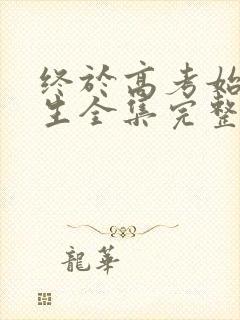 终於高考始
生全集完整
龍華